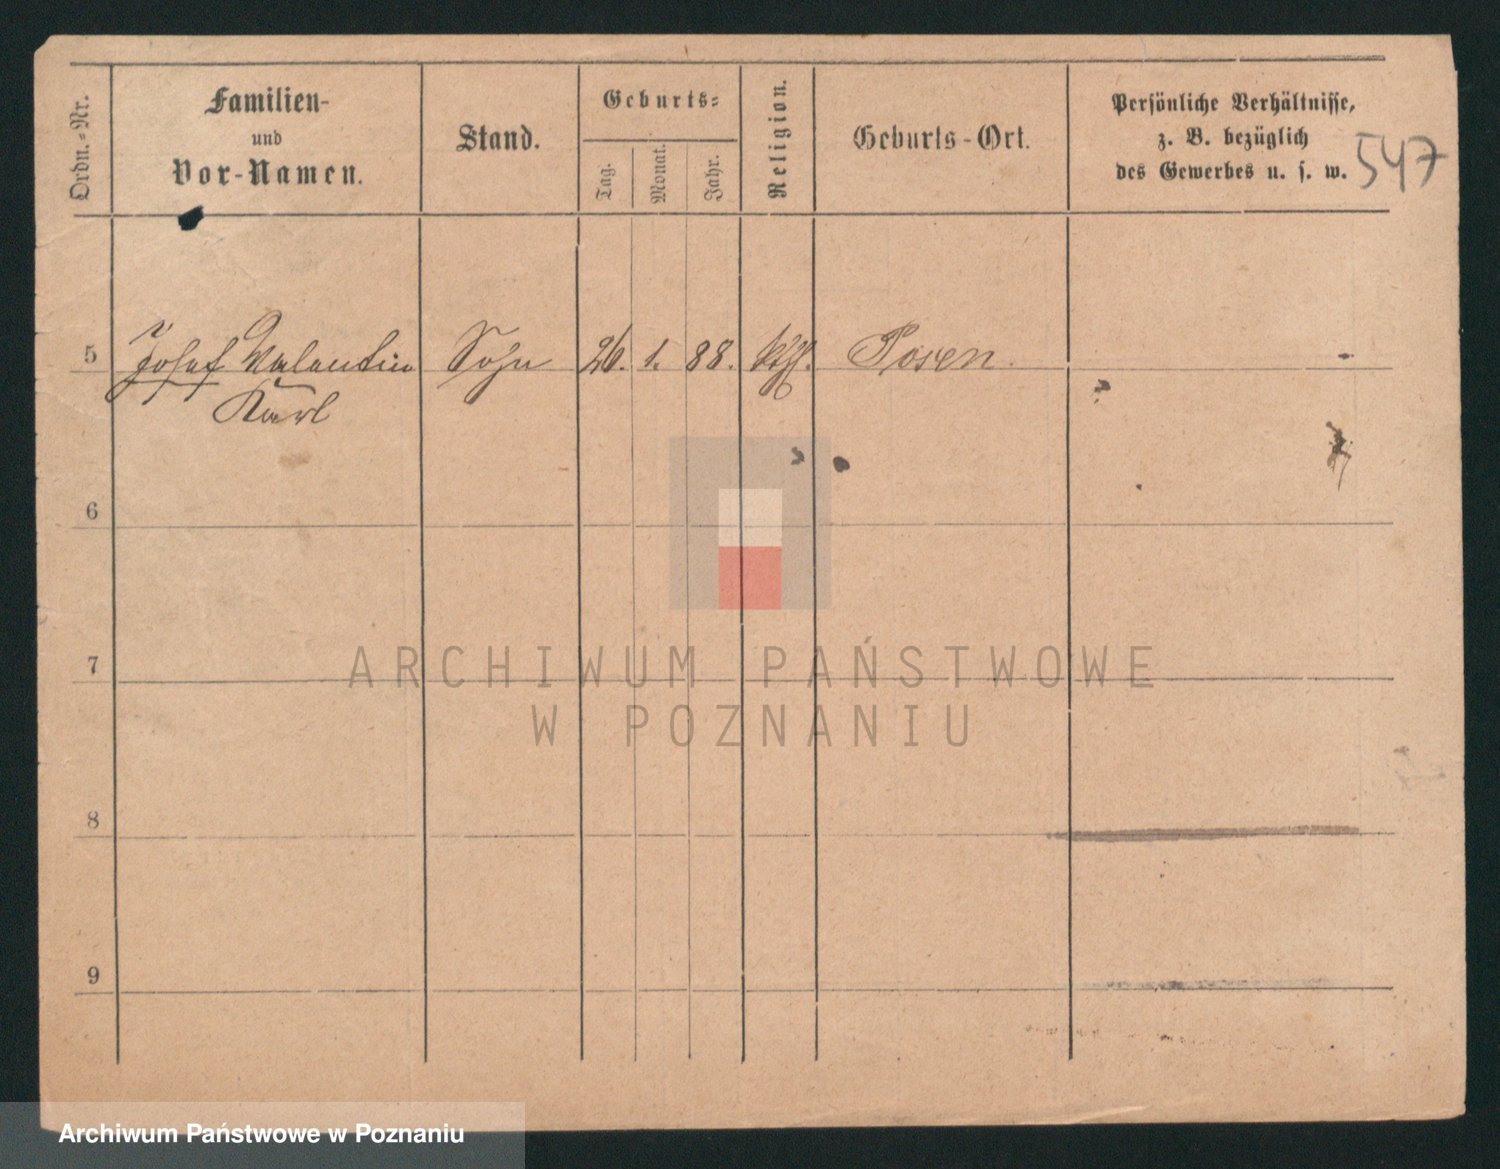 Ordn.-Nr.
Familien-
und
Vor-Namen.
Stand.
Geburts-
Tag.
Monat.
Jahr.
Religion.
Geburts-Ort.
Persönliche Verhältnisse,
z. B. bezüglich
des Gewerbes u. s. w.
547
5 Josef Valentin Sohn 26. 1. 88. kth. Posen.
Karl
6
7
8
9
ARCHIWUM PAŃSTWOWE
W POZNANIU
Archiwum Państwowe w Poznaniu